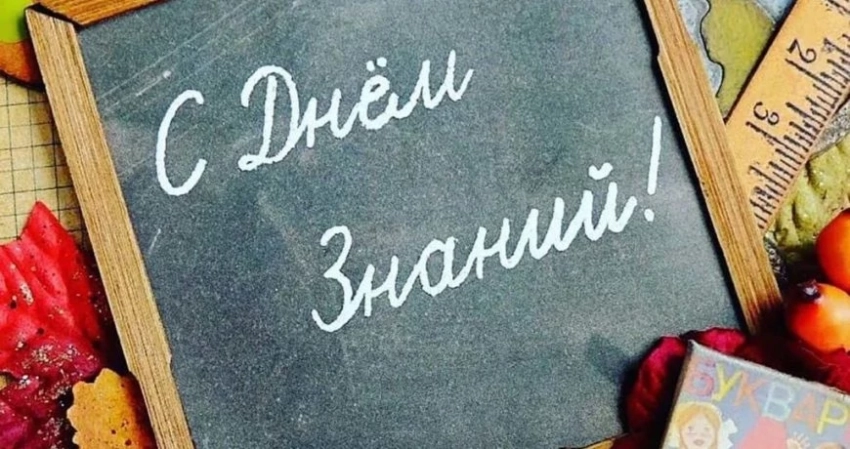 С Днём
Знаний!
2
3
БУКВАР